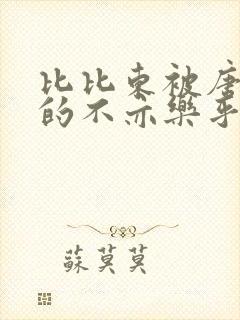 比比东被唐
的不亦樂乎
蘇莫莫